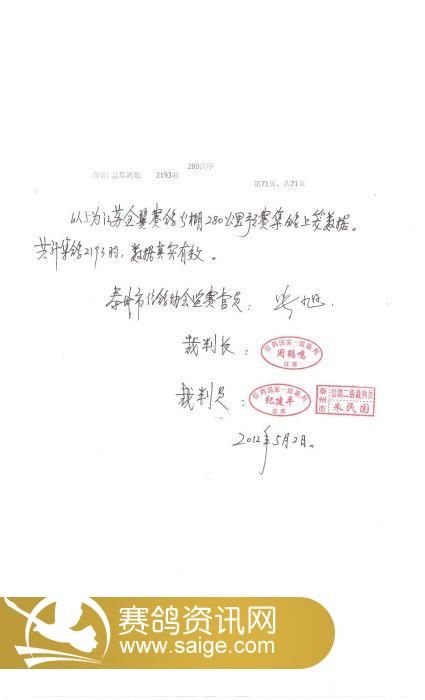 280次序
合计: 总集鸽数 2193羽
第71页, 共71页
以上为江苏金翼赛鸽公棚280公里预赛集鸽上笼数据。
共计集鸽2193羽, 数据真实有效。
泰州市信鸽协会监赛官员:
裁判长:
信鸽国家一级裁判
周鹤鸣
江苏
裁判员:
信鸽国家一级裁判
纪建平
江苏
泰州市
信鸽二级裁判员
朱民国
2012年5月2日。
赛鸽资讯网
www.saige.com